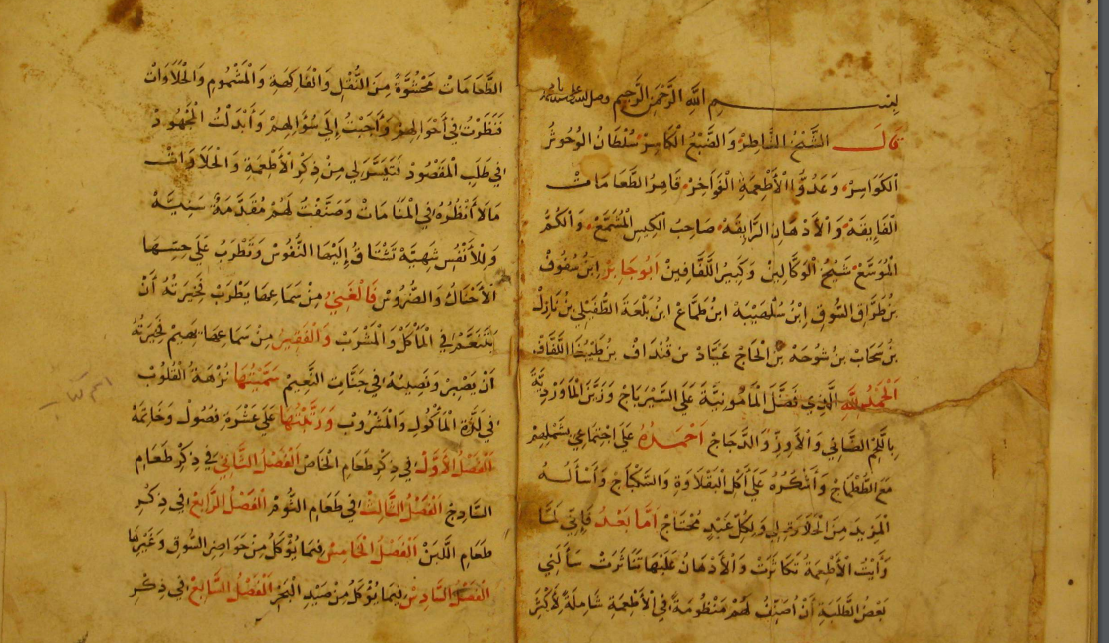 بسم الله الرحمن الرحيم وصلى الله على سيدنا محمد
قال الشيخ الشاطر والضبع الكاسر سلطان الوحوش
الكواسر وعدو الاطعمة الفواخر قاهر الطعامات
الفايقة والادهان الرايقة صاحب الكيس المشمع والكم
الموسع شيخ الوكالين وكبير اللفافين ابو جابر ابن
بن طراق السوق ابن ابن طماع ابن بلعة الطفيلي بن نازل
بن سحاب بن شوحة بن الحاج عياد بن قنداف بن اللفاف
الحمد لله الذي فضل المامونية على السيرباج وزين الماوردية
باللحم الضاني والاوز والدجاج احمده على اجتماعي بشملهم
مع الططماج واشكره على اكل البقلاوة والسكباج واسأله
المزيد من الحلاوة لي ولكل عبد محتاج اما بعد فإني لما
رأيت الأطعمة تكاثرت والأدهان عليها تناثرت سألني
بعض الطلبة أن أصنف لهم منظومة في الأطعمة شاملة لأكثر
الطعامات محشوة من النقل والفاكهة والمشموم والحلاوات
فنظرت في أحوالهم وأجبت إلى سؤالهم وأبذلت المجهود
في طلب المقصود فتيسر لي من ذكر الأطعمة والحلاوات
مالا أنظره في المنامات وصنفت لهم مقدمة سنية
وللأنفس شهية تشتاق إليها النفوس وتطرب على حسها
الأحناك والضروس فالغني من سماعها يطرب فخيرته أن
يتنعم في المأكل والمشرب والفقير من سماعها يهيم فخيرته
أن يصير ونصيبه في جنات النعيم سميتها نزهة القلوب
في لذة المأكول والمشروب ورتبتها على عشرة فصول وخاتمة
الفصل الأول في ذكر طعام الخاص الفصل الثاني في ذكر طعام
السادج الفصل الثالث في طعام الثوم الفصل الرابع في ذكر
طعام اللبن الفصل الخامس فيما يؤكل من حواضر السوق وغيرها
الفصل السادس فيما يؤكل من صيد البحر الفصل السابع في ذكر